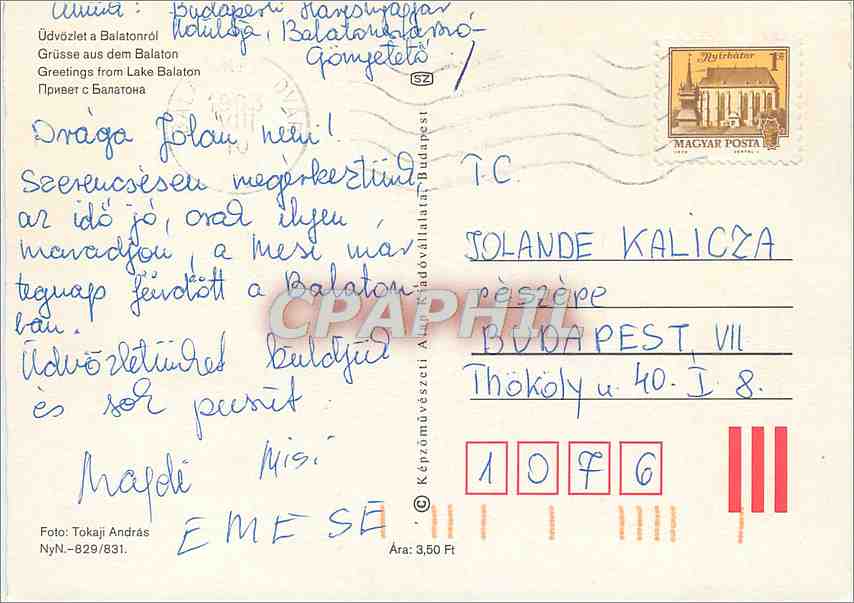 Budapesti
Üdülője, Balaton
Üdvözlet a Balatonról
Grüsse aus dem Balaton
Greetings from Lake Balaton
Привет с Балатона
SZ
Nyírbátor
1 Ft
MAGYAR POSTA
Drága Jolan néni!
Szerencsésen megérkeztünk,
az idő jó, csak ilyen
maradjon, a Mesi már
tegnap fürdött a Balaton
ban.
Üdvözletünket küldjük
és sok puszit
Magdi Misi
EMESE
T.C.
JOLANDE KALICZA
részére
BUDAPEST, VII
Thököly u. 40. I. 8.
1076
CPAPHIL
© Képzőművészeti Alap Kiadóvállalata, Budapest
Foto: Tokaji András
NyN.–829/831.
Ára: 3,50 Ft